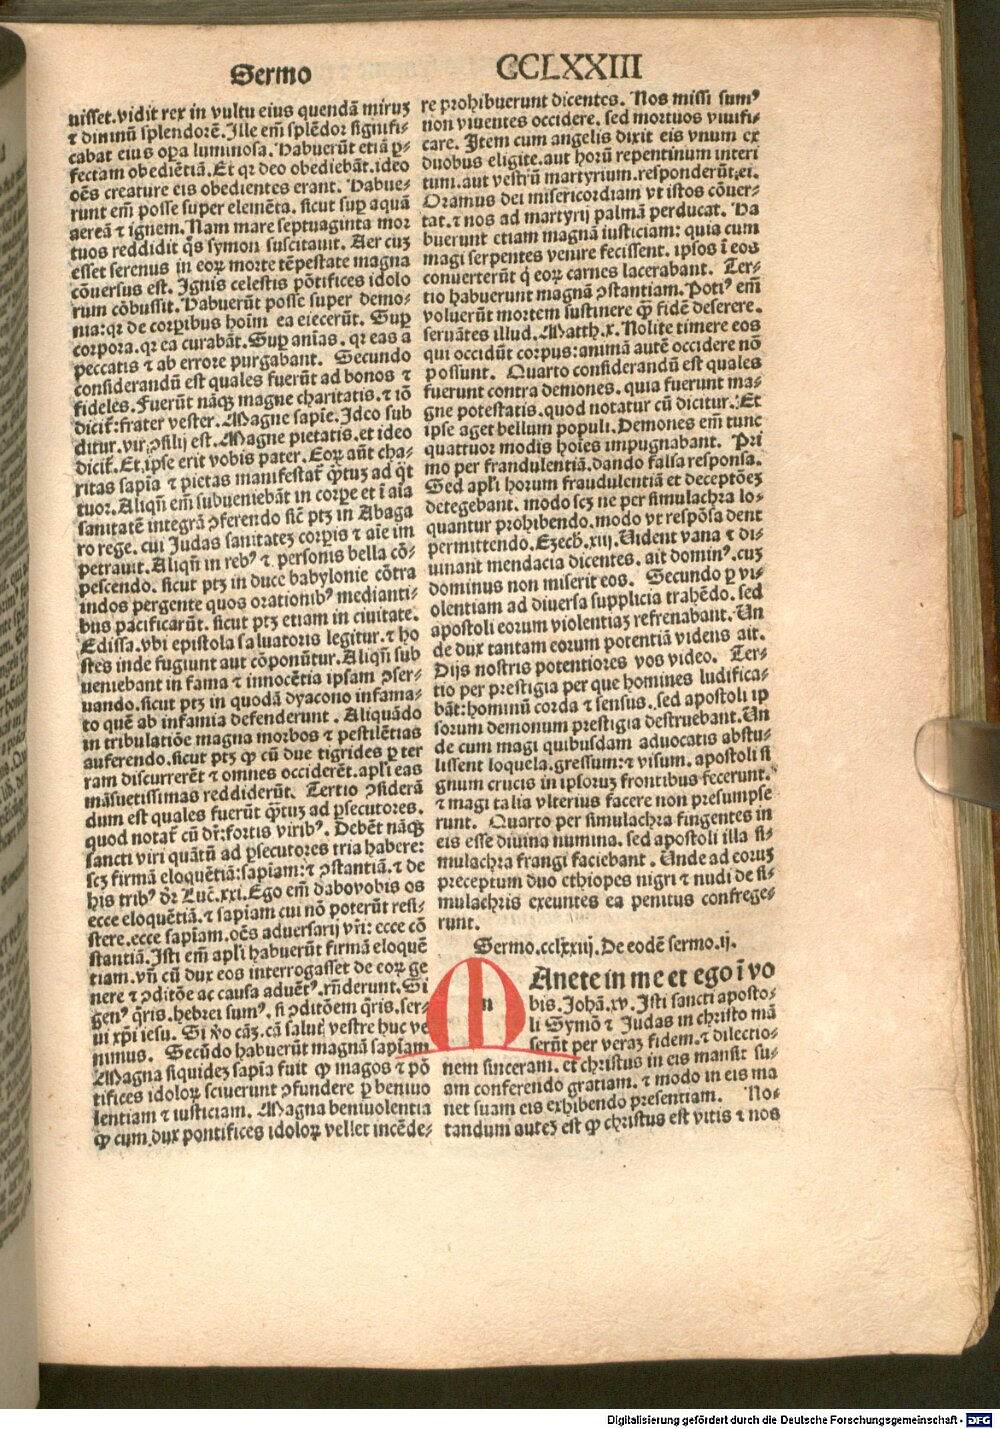 Sermo CCLXXIII
uisset. vidit rex in vultu eius quendã miruȝ
⁊ diuinũ splendorẽ. Ille em̃ splẽdor signifi-
cabat eius oꝑa luminosa. Habuerũt etiã ꝑ-
fectam obediẽtiã. Et qꝛ deo obediebãt. ideo
oẽs creature eis obedientes erant. Habue-
runt em̃ posse super elemẽta. sicut suꝑ aquã
aereã ⁊ ignem. Nam mare septuaginta mor
tuos reddidit q̃s symon suscitauit. Aer cuȝ
esset serenus in eoꝝ morte tẽpestate magna
cõuersus est. Ignis celestis põtifices idolo
rum cõbussit. Habuerũt posse super demo-
nia: qꝛ de corꝑibus hoĩm ea eiecerũt. Suꝑ
corpora. qꝛ ea curabãt. Suꝑ aĩas. qꝛ eas a
peccatis ⁊ ab errore purgabant. Secundo
considerandũ est quales fuerũt ad bonos ⁊
fideles. Fuerũt nãqȝ magne charitatis. ⁊ iõ
dicit̃: frater vester. Magne sapĩe. Ideo sub
ditur. vir ꝯsilij est. Magne pietatis. et ideo
dicit̃. Et ipse erit vobis pater. Eoꝝ aũt cha-
ritas sapĩa ⁊ pietas manifestat̃ q̃tuȝ ad q̃t
tuor. Aliqñ em̃ subueniebãt in corꝑe et ĩ aĩa
sanitatẽ integrã ꝯferendo sic̃ ptȝ in Abaga
ro rege. cui Judas sanitateȝ corꝑis ⁊ aĩe im
petrauit. Aliqñ in rebꝰ ⁊ personis bella cõ-
pescendo. sicut ptȝ in duce babylonie cõtra
indos pergente quos orationibꝰ medianti-
bus pacificarũt. sicut ptȝ etiam in ciuitate.
Edissa. vbi epistola saluatoris legitur. ⁊ ho
stes inde fugiunt aut cõponũtur. Aliqñ sub
ueniebant in fama ⁊ innocẽtia ipsam ꝯser-
uando. sicut ptȝ in quodã dyacono infama-
to quẽ ab infamia defenderunt. Aliquãdo
in tribulatiõe magna morbos ⁊ pestilẽtias
auferendo. sicut ptȝ ꝙ cũ due tigrides ꝑ ter
ram discurrerẽt ⁊ omnes occiderẽt. apl̃i eas
mãsuetissimas reddiderũt. Tertio ꝯsiderã
dum est quales fuerũt q̃tuȝ ad ꝑsecutores.
quod notat̃ cũ dr̃: fortis viribꝰ. Debẽt nãqȝ
sancti viri quãtũ ad ꝑsecutores tria habere:
scȝ firmã eloquẽtiã: sapiam: ⁊ ꝯstantiã. ⁊ de
his tribꝰ dr̃ Luc̃. xxi. Ego em̃ dabo vobis os
ecce eloquẽtiã. ⁊ sapiam cui nõ poterũt resi-
stere. ecce sapĩam. oẽs aduersarij vr̃i: ecce cõ
stantiã. Isti em̃ apl̃i habuerũt firmã eloquẽ
tiam. vñ cũ dux eos interrogasset de eoꝝ ge
nere ⁊ ꝯditõe ac causa aduẽtꝰ. rñderunt. Si
genꝰ q̃ris. hebrei sumꝰ. si ꝯditõem q̃ris. ser-
ui xp̃i iesu. Si ṽo cãȝ. cã salut̃ vestre huc ve
nimus. Secũdo habuerũt magnã sapĩam
Magna siquideȝ sapĩa fuit ꝙ magos ⁊ põ
tifices idoloꝝ sciuerunt ꝯfundere ꝑ beniuo
lentiam ⁊ iusticiam. Magna beniuolentia
ꝙ cum dux pontifices idoloꝝ vellet incẽde-
re prohibuerunt dicentes. Nos missi sumꝰ
non viuentes occidere. sed mortuos viuifi-
care. Item cum angelis dixit eis vnum ex
duobus eligite. aut horũ repentinum interi
tum. aut vestrũ martyrium. responderũt ei.
Oramus dei misericordiam vt istos cõuer-
tat. ⁊ nos ad martyrij palmã perducat. Ha
buerunt etiam magnã iusticiam: quia cum
magi serpentes venire fecissent. ipsos ĩ eos
conuerterũt q̃ eoꝝ carnes lacerabant. Ter-
tio habuerunt magnã ꝯstantiam. Potiꝰ em̃
voluerũt mortem sustinere ꝙ̃ fidẽ deserere.
seruãtes illud. Matth. x. Nolite timere eos
qui occidũt corpus: animã autẽ occidere nõ
possunt. Quarto considerandũ est quales
fuerunt contra demones. quia fuerunt ma-
gne potestatis. quod notatur cũ dicitur. Et
ipse aget bellum populi. Demones em̃ tunc
quattuor modis hoĩes impugnabant. Pri
mo per fraudulentiã. dando falsa responsa.
Sed apl̃i horum fraudulentiã et deceptõeȝ
detegebant. modo scȝ ne per simulachra lo-
quantur prohibendo. modo vt respõsa dent
permittendo. Ezech. xiij. Uident vana ⁊ di-
uinant mendacia dicentes. ait dominꝰ. cuȝ
dominus non miserit eos. Secundo ꝑ vi-
olentiam ad diuersa supplicia trahẽdo. sed
apostoli eorum violentiaȝ refrenabant. Un
de dux tantam eorum potentiã videns ait.
Dijs nostris potentiores vos video. Ter-
tio per prestigia per que homines ludifica-
bãt: hominũ corda ⁊ sensus. sed apostoli ip
sorum demonum prestigia destruebant. Un
de cum magi quibusdam aduocatis abstu-
lissent loquela. gressum: ⁊ visum. apostoli si
gnum crucis in ipsoruȝ frontibus fecerunt.
⁊ magi talia vlterius facere non presumpse
runt. Quarto per simulachra fingentes in
eis esse diuina numina. sed apostoli illa si-
mulachra frangi faciebant. Unde ad eoruȝ
preceptum duo ethiopes nigri ⁊ nudi de si-
mulachris exeuntes ea penitus confrege-
runt.
Sermo. cclxxiij. De eodẽ sermo. ij.
MAnete in me et ego ĩ vo
bis. Johã. xv. Isti sancti aposto-
li Symõ ⁊ Judas in christo mã
serũt per veraȝ fidem. ⁊ dilectio-
nem sinceram. et christus in eis mansit su-
am conferendo gratiam. ⁊ modo in eis ma
net suam eis exhibendo presentiam. No-
tandum auteȝ est ꝙ christus est vitis ⁊ nos
Digitalisierung gefördert durch die Deutsche Forschungsgemeinschaft - DFG